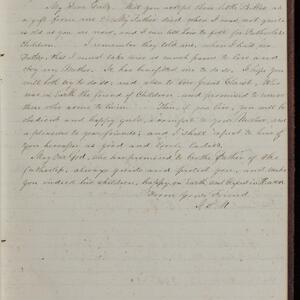 My Dear Girls. Will you accept these little Bibles as
a gift from me. My Father died when I was not quite
as old as you are now, and I can tell how to feel for Fatherless
Children. I remember they told me, when I had no
Father, that I must take more pains to love and
obey my Mother. It has benefitted me to do so, I hope you
will both try to do so, and also to love good Christ, who
was on Earth the friend of Children and promised to
those who come to him. Then, if you live, you will be
obedient and happy girls, a comfort to your Mother, and
a pleasure to your friends, and I shall expect to hear of
you hereafter as good and lovely Ladies.
May our God, who has promised to be the Father of the
Fatherless, always guide and protect you, and make
you indeed his children, happy on Earth and in Heaven
From your friend